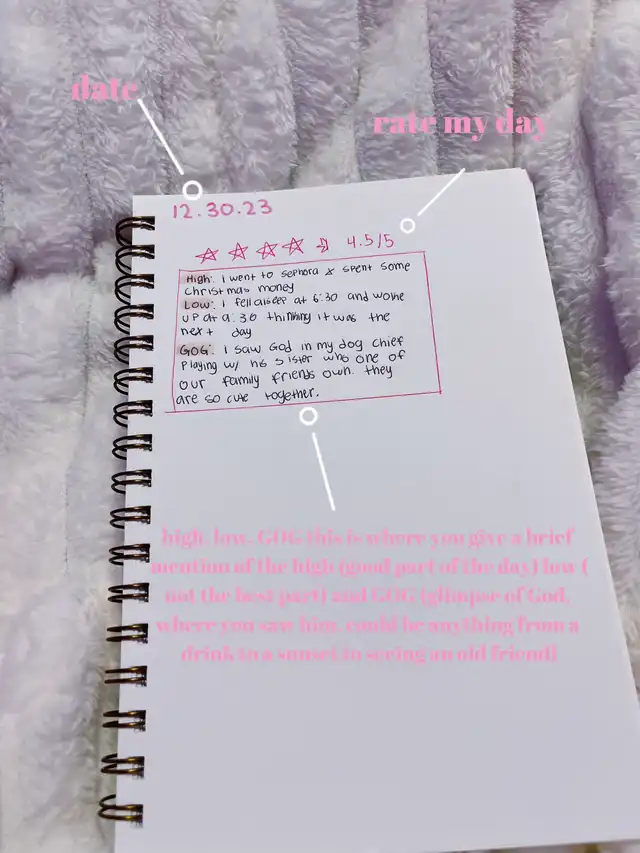 date
rate my day
12.30.23
4.5/5
High: i went to sephora & spent some
christmas money
Low: I fell asleep at 6:30 and woke
up at 9:30 thinking it was the
next day
GOG: I saw God in my dog chief
playing w/ his sister who one of
our family friends own. they
are so cute together.
high, low, GOG this is where you give a brief
mention of the high (good part of the day) low (
not the best part) and GOG (glimpse of God,
where you saw him, could be anything from a
drink to a sunset to seeing an old friend)